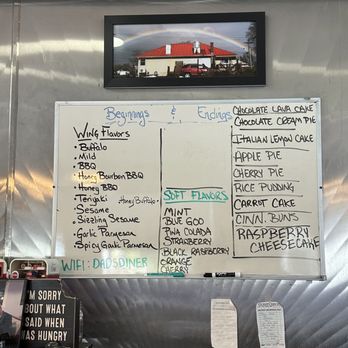 Beginnings & Endings
Wing Flavors
• Buffalo
• Mild
• BBQ
• Honey Bourbon BBQ
• Honey BBQ
• Teriyaki
Honey Buffalo •
• Sesame
• Sizzling Sesame
• Garlic Parmesan
• Spicy Garlic Parmesan
WIFI: DADSDINER
SOFT FLAVORS
MINT
BLUE GOO
PINA COLADA
STRAWBERRY
BLACK RASPBERRY
ORANGE
CHERRY
CHOCOLATE LAVA CAKE
CHOCOLATE CREAM PIE
ITALIAN LEMON CAKE
APPLE PIE
CHERRY PIE
RICE PUDDING
CARROT CAKE
CINN. BUNS
RASPBERRY
CHEESECAKE
I'M SORRY
ABOUT WHAT
I SAID WHEN
I WAS HUNGRY